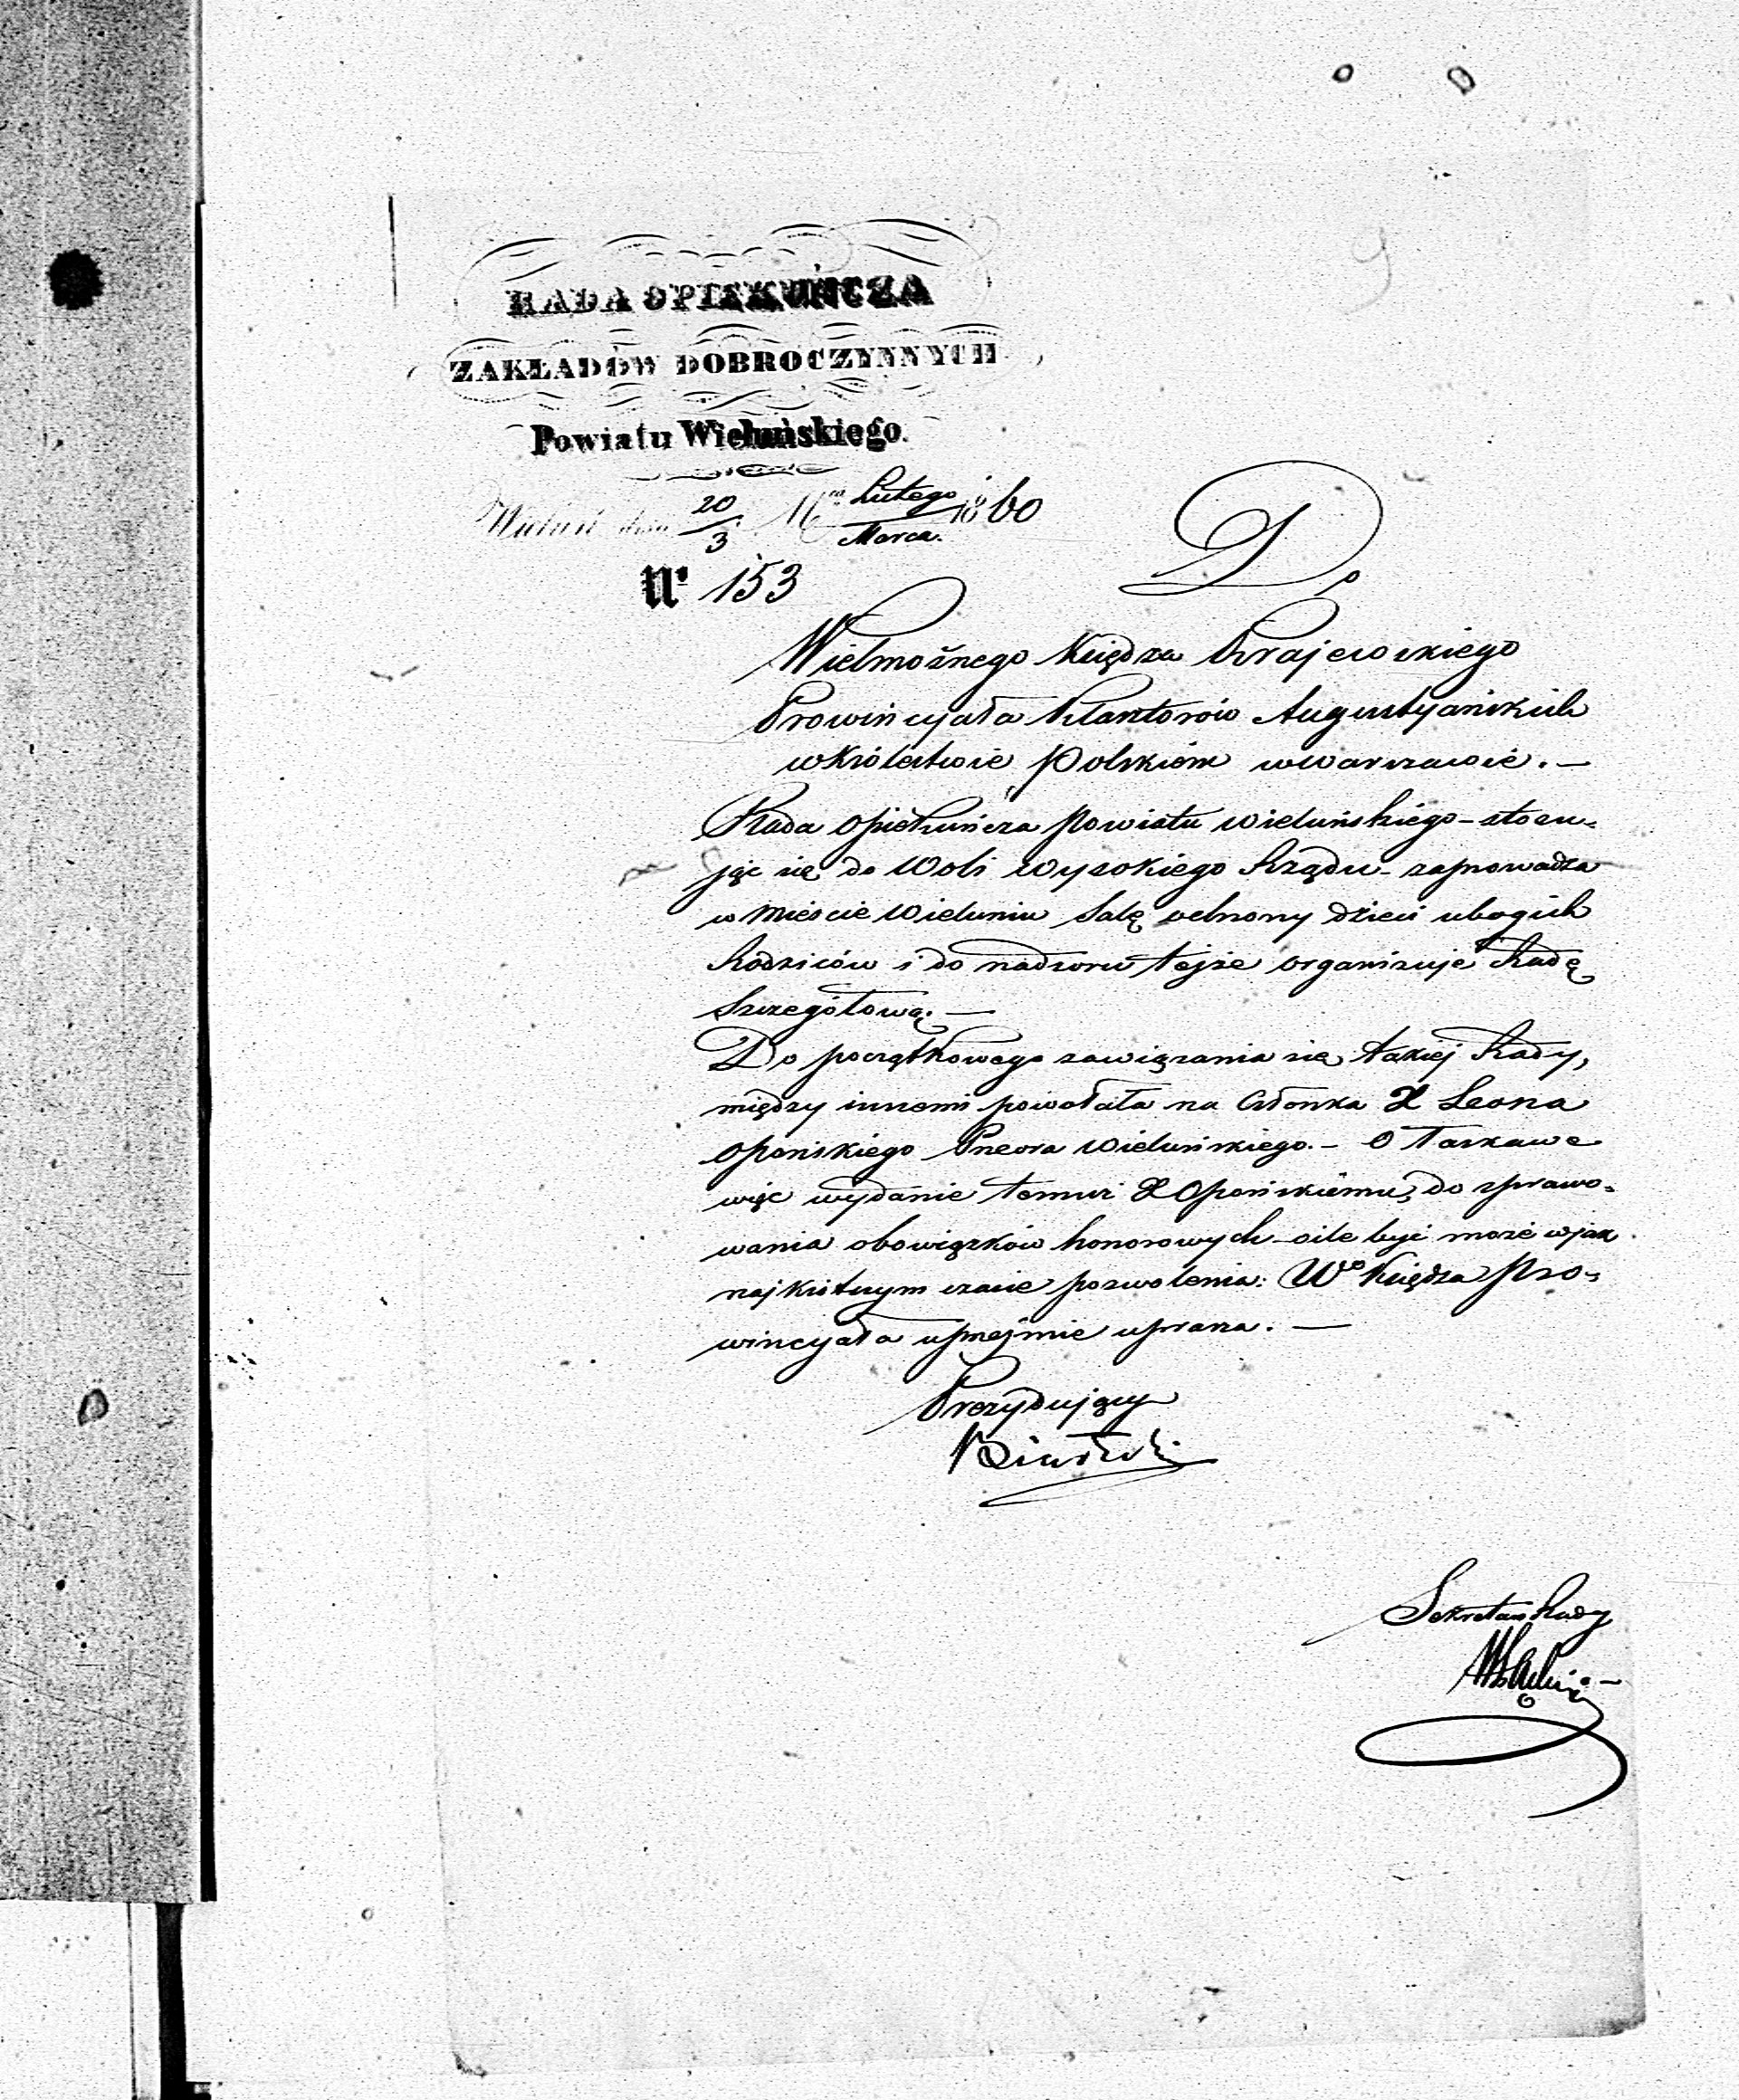 9
RADA OPIEKUŃCZA
ZAKŁADÓW DOBROCZYNNYCH
Powiatu Wieluńskiego.
Wieluń dnia 20/3 Mca Lutego/Marca 1860
Nr 153
Do
Wielmożnego Księdza Krajewskiego
Prowincyała Klasztorów Augustyańskich
w Królestwie Polskiém w Warszawie. —
Rada Opiekuńcza Powiatu Wieluńskiego – stosu-
jąc się do Woli Wysokiego Rządu – zaprowadza
w Mieście Wieluniu Salę ochrony dzieci ubogich
Rodziców i do nadzoru tejże organizuje Radę
Szczegółową. —
Do początkowego zawiązania się takiej Rady,
między innemi powołała na Członka X Leona
Opońskiego Przeora Wieluńskiego. – O łaskawe
więc wydanie temuż X Opońskiemu, do sprawo-
wania obowiązków honorowych – o ile być może w jak
najkrótszym czasie pozwolenia: Wo Księdza Pro-
wincyała uprzejmie uprasza. —
Prezydujący
Sekretarz Rady